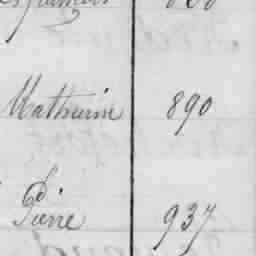 Mathurin 890
Pierre 937